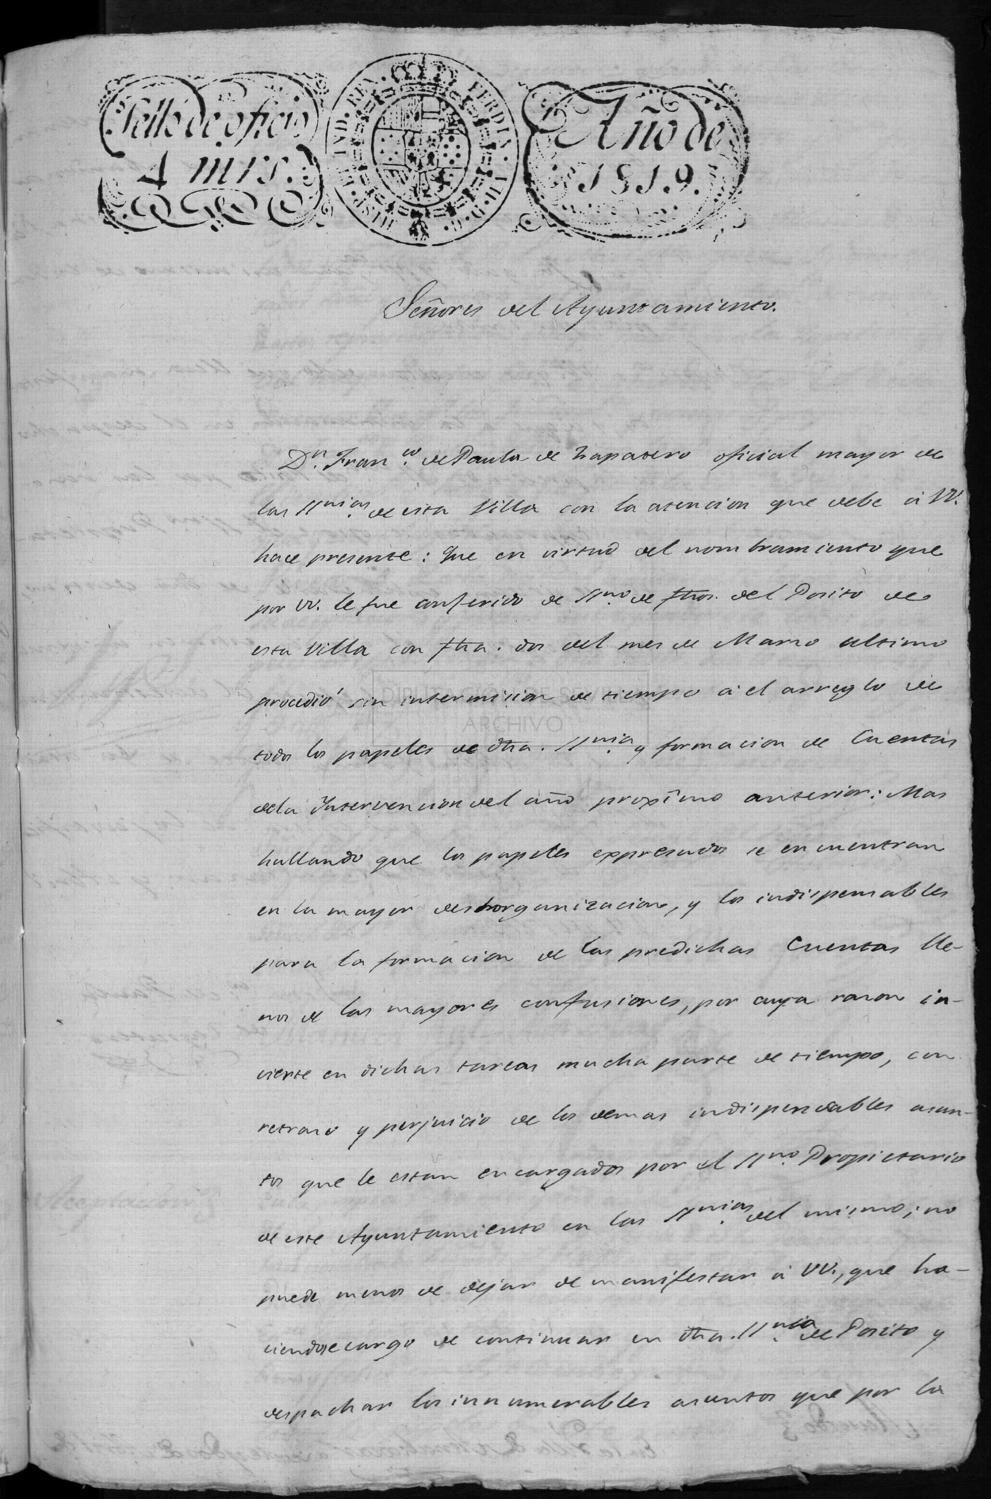 Sello de oficio
4 mrs.
HISP. ET IND. REX. FERDIN. VII. D. G.
Año de
1819.
Señores del Ayuntamiento.
Dn. Franco. de Paula de Zapatero oficial mayor de
las SSnias. de esta Villa con la atencion que debe á VV.
hace presente: Que en virtud del nombramiento que
por VV. le fue conferido de SSno. de fhos. del Posito de
esta Villa con fha. dos del mes de Marzo ultimo
procedió sin intermision de tiempo á el arreglo de
todos los papeles de dha. SSnia. y formacion de Cuentas
dela Intervencion del año proximo anterior: Mas
hallando que los papeles expresados se encuentran
en la mayor deshorganizacion, y los indispensables
para la formacion de las predichas Cuentas lle-
nos de las mayores confusiones, por cuya razon in-
vierte en dichas tareas mucha parte de tiempo, con
retraso y perjuicio de los demas indispensables asun-
tos que le estan encargados por el SSno. Propietario
de este Ayuntamiento en las SSnias. del mismo; no
puede menos de dejar de manifestar á VV., que ha-
ciendose cargo de continuar en dha. SSnia. de Posito y
despachar los innumerables asuntos que por la
ARCHIVO